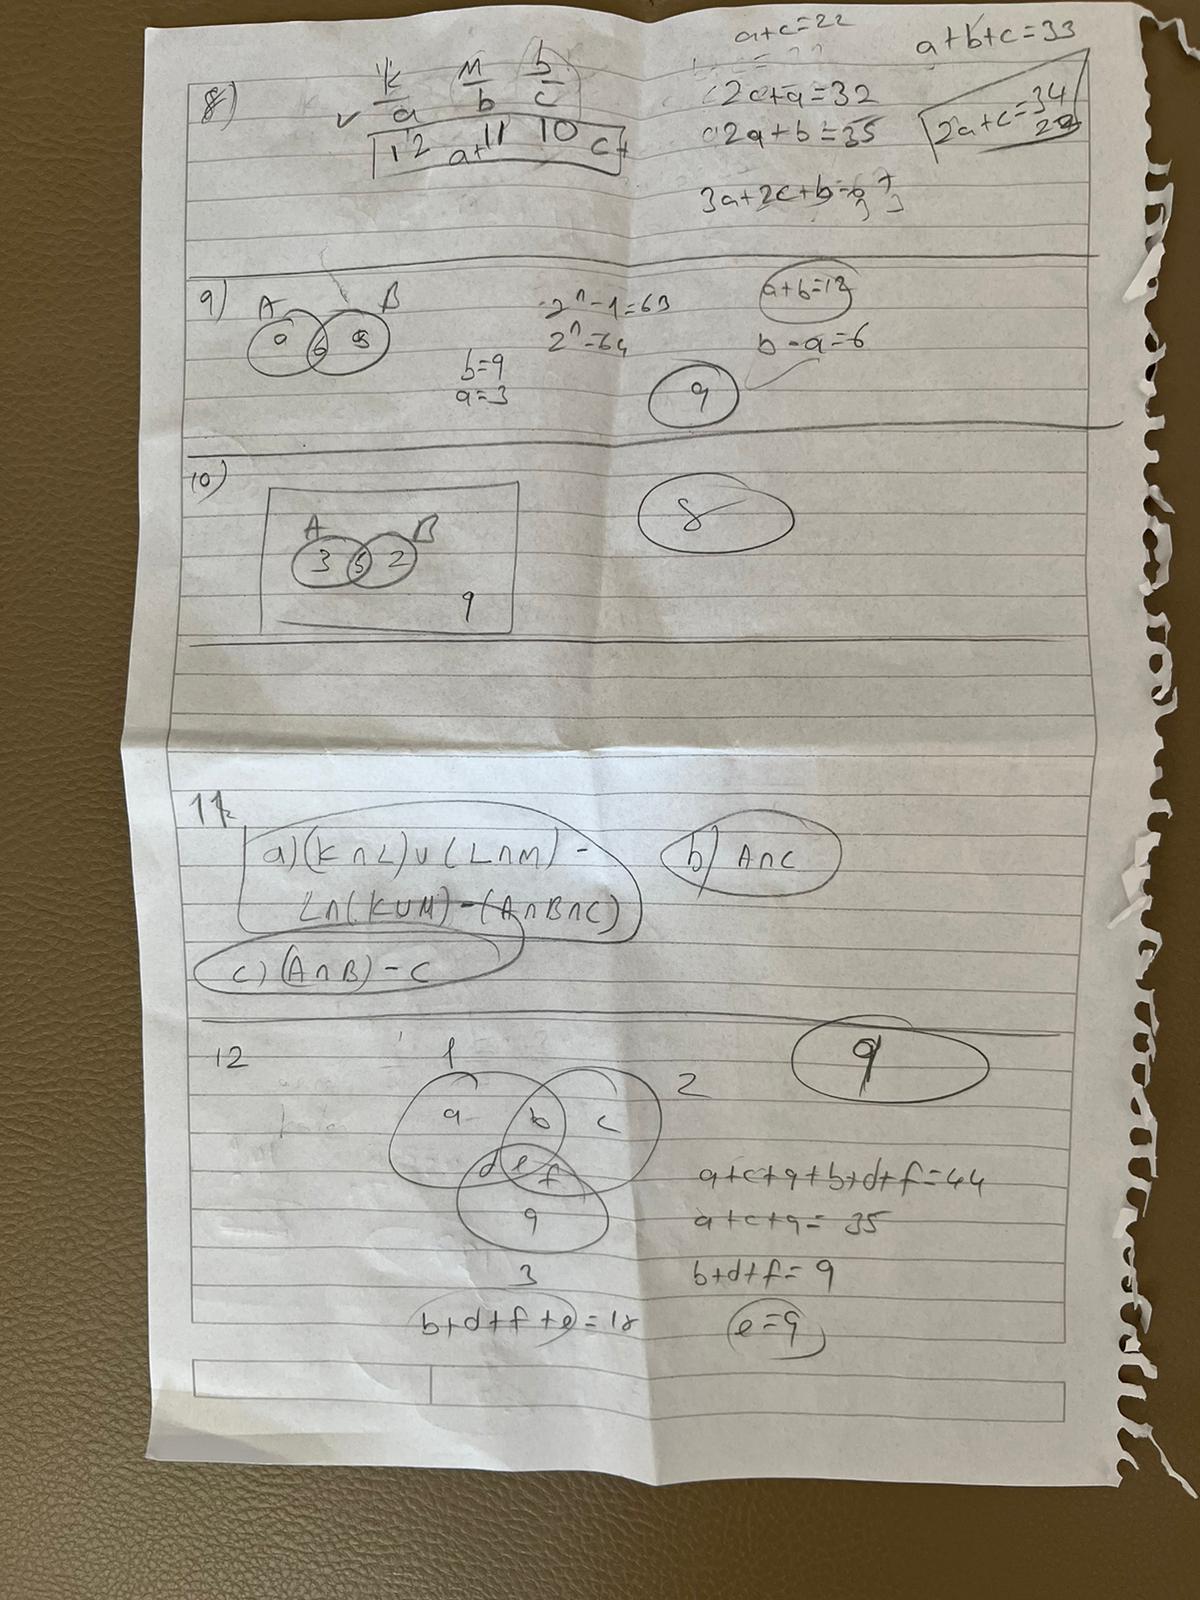 8)
k M b
a b c
12 a+11 10 c+
a+c=22
2c+a=32
2a+b=35
3a+2c+b=
a+b+c=33
2a+c=34
9)
A B
a 6 B
b=9
a=3
2ⁿ-1=63
2ⁿ=64
a+b=12
b-a=6
9
10)
A B
3 5 2
9
8
11
a) (K∩L)∪(L∩M) -
L∩(K∪M)-(A∩B∩C)
b) A∩C
c) (A∩B)-C
12
1
2
a b c
d e f
9
3
b+d+f+e=18
9
a+c+9+b+d+f=44
a+c+9=35
b+d+f=9
e=9